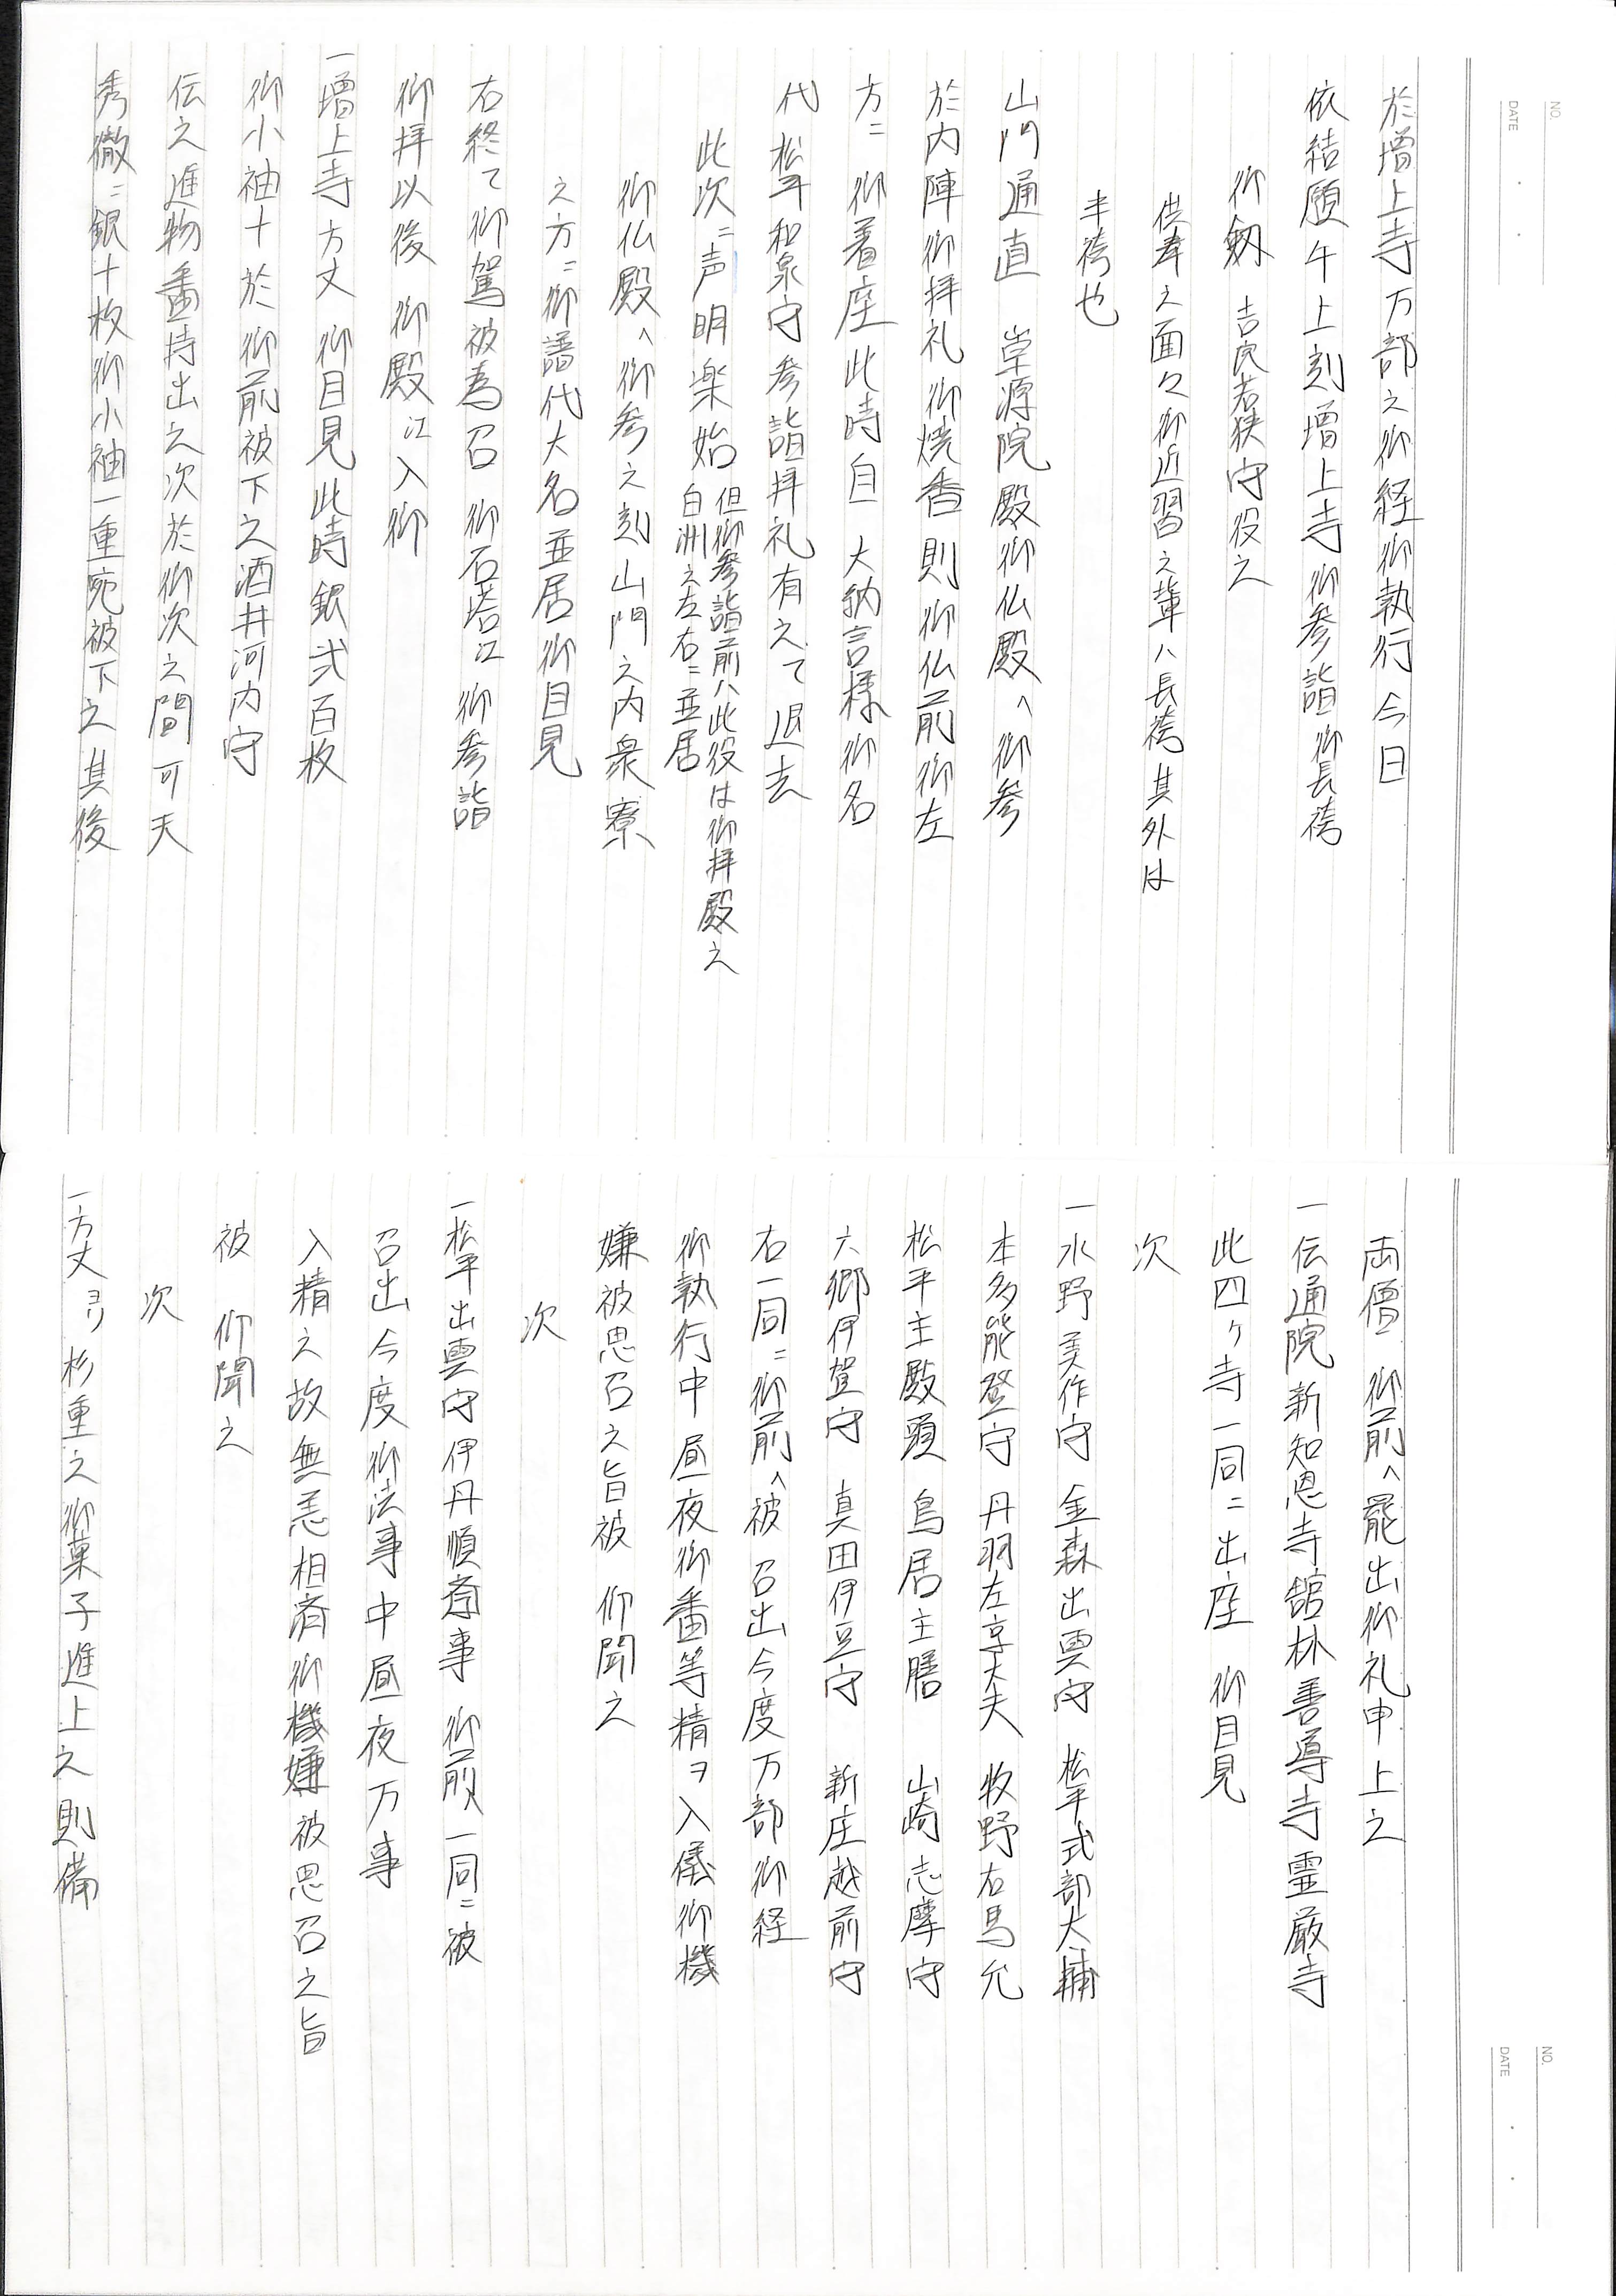 NO.
DATE
於増上寺万部之御経御執行今日
依結願午上刻増上寺御参詣御長袴
御剱 吉良若狭守役之
供奉之面々御近習之輩ハ長袴其外は
半袴也
山門通直 崇源院殿御仏殿へ御参
於内陣御拝礼御焼香則御仏前御左
方ニ 御着座此時自 大納言様御名
代 松平和泉守参詣拝礼有之て退去
此次ニ声明楽始 但御参詣前ハ此役は御拝殿之
白洲之左右ニ並居
御仏殿へ御参之刻山門之内衆寮
之方ニ御譜代大名並居御目見
右終て御駕被為召 御石塔江 御参詣
御拝以後 御殿江入御
一増上寺方丈 御目見此時銀弐百枚
御小袖十於御前被下之酒井河内守
伝之進物番持出之次於御次之間可天
秀徹ニ銀十枚御小袖一重宛被下之其後
NO.
DATE
両僧 御前へ罷出御礼申上之
一伝通院新知恩寺舘林善導寺霊厳寺
此四ヶ寺一同ニ出座 御目見
次
一水野美作守 金森出雲守 松平式部大輔
本多能登守 丹羽左京大夫 牧野右馬允
松平主殿頭 鳥居主膳 山崎志摩守
六郷伊賀守 真田伊豆守 新庄越前守
右一同ニ御前へ被 召出今度万部御経
御執行中昼夜御番等精ヲ入儀御機
嫌被思召之旨被 仰聞之
次
一松平出雲守伊丹順斎事 御前へ一同ニ被
召出今度御法事中昼夜万事
入精之故無恙相済御機嫌被思召之旨
被 仰聞之
次
一方丈ヨリ杉重之御菓子進上之則備